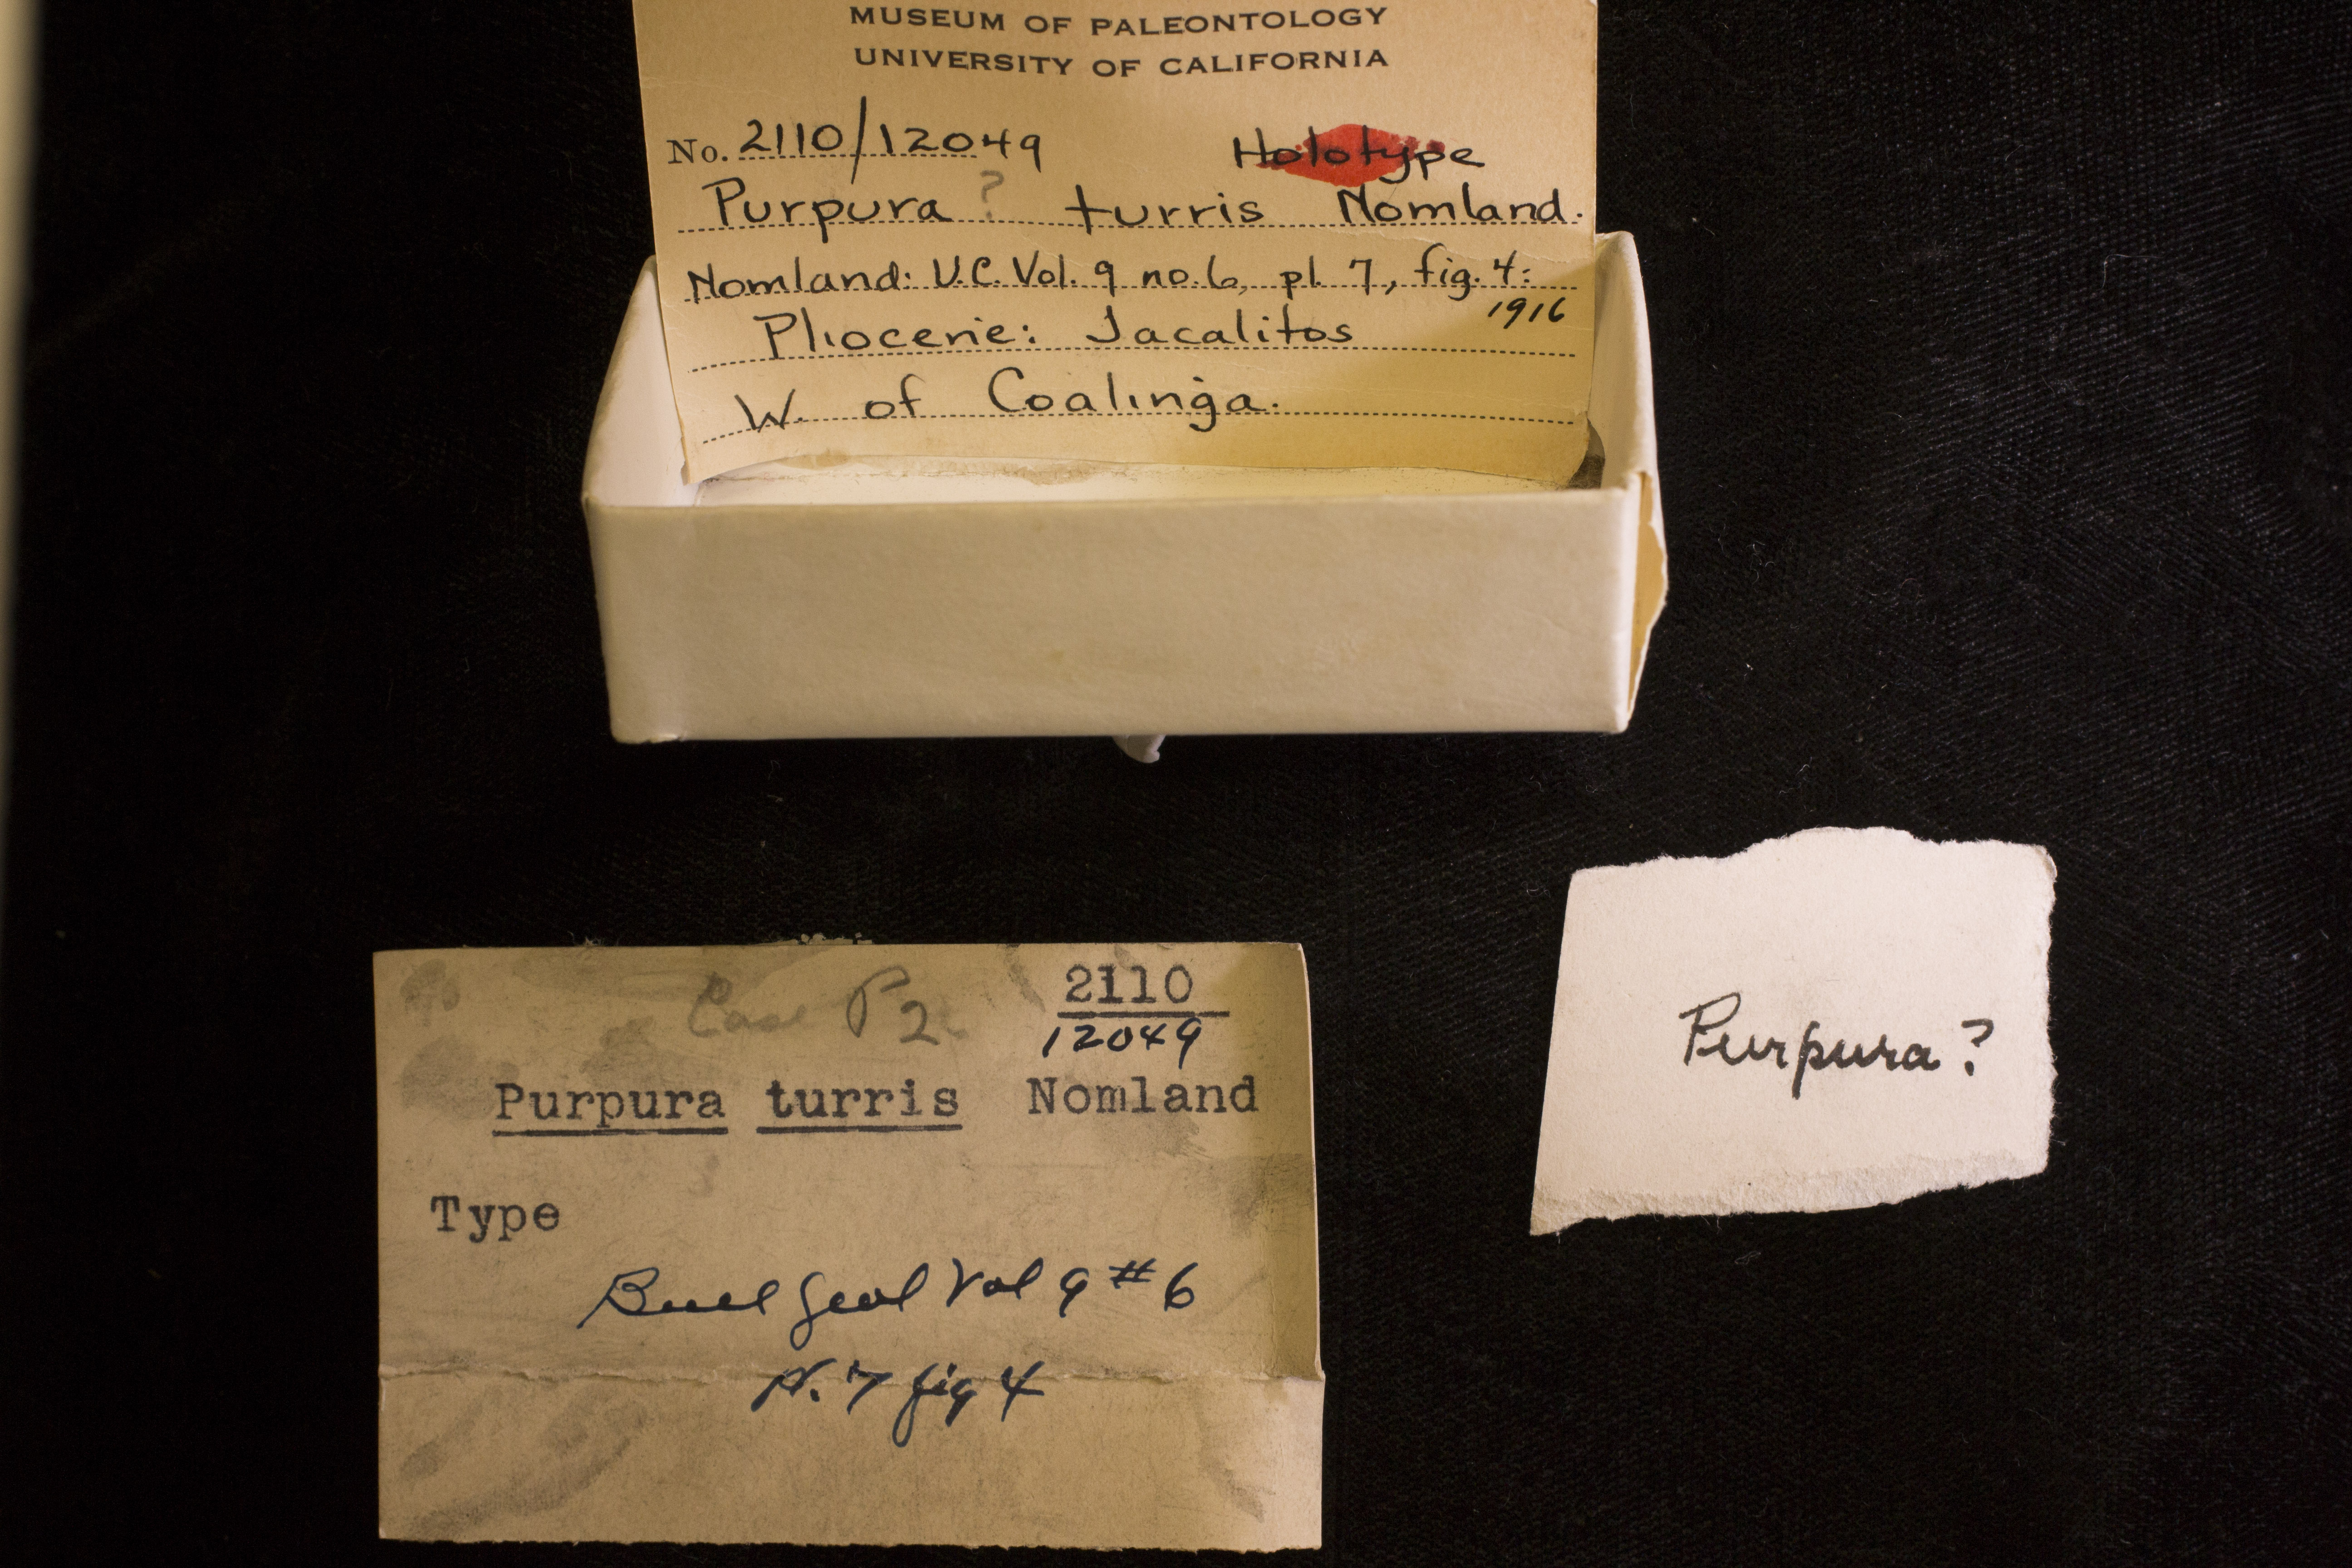 MUSEUM OF PALEONTOLOGY
UNIVERSITY OF CALIFORNIA
No. 2110/12049 Holotype
Purpura ? turris Nomland.
Nomland: U.C. Vol. 9 no. 6, pl. 7, fig. 4:
1916
Pliocene: Jacalitos
W. of Coalinga.
Case P2
2110
12049
Purpura turris Nomland
Type
Bull Geol Vol 9 #6
Pl. 7 fig 4
Purpura?